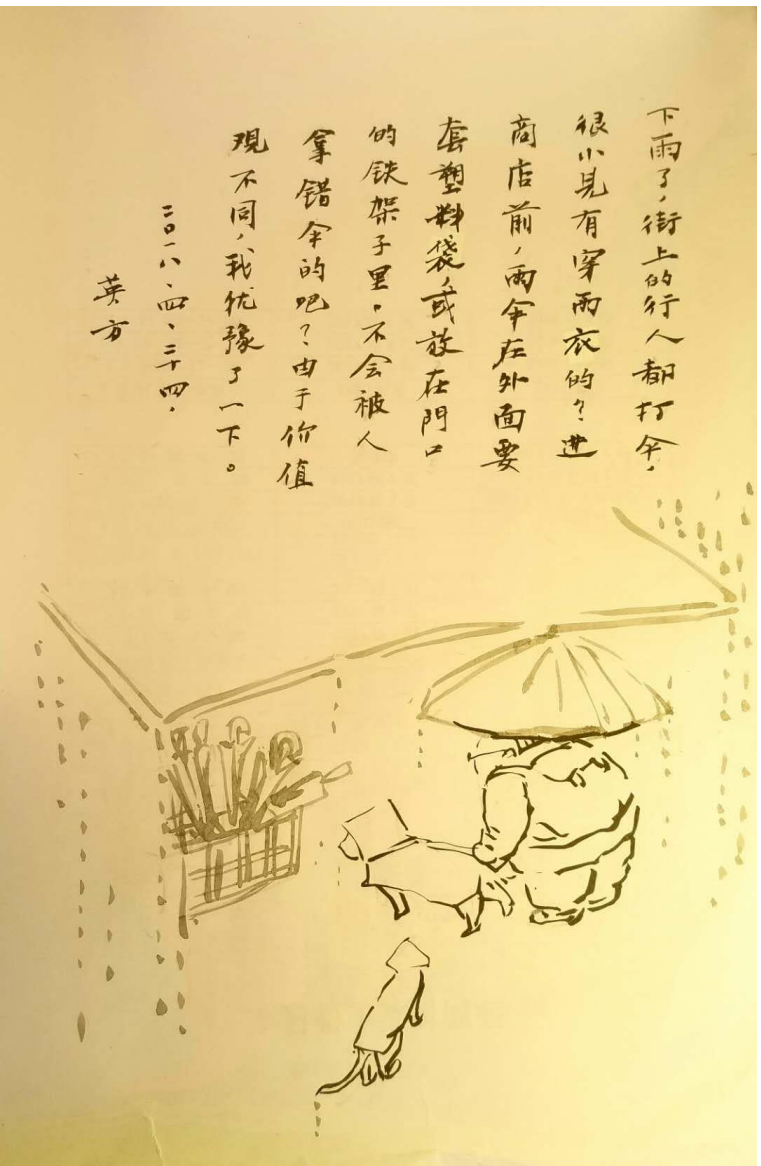 下雨了，街上的行人都打伞，
很小見有穿雨衣的？進
商店前，雨伞在外面要
套塑料袋，或放在門口
的铁架子里。不会被人
拿错伞的吧？由于价值
观不同，我犹豫了一下。
二〇一八、四、二十四，
英方